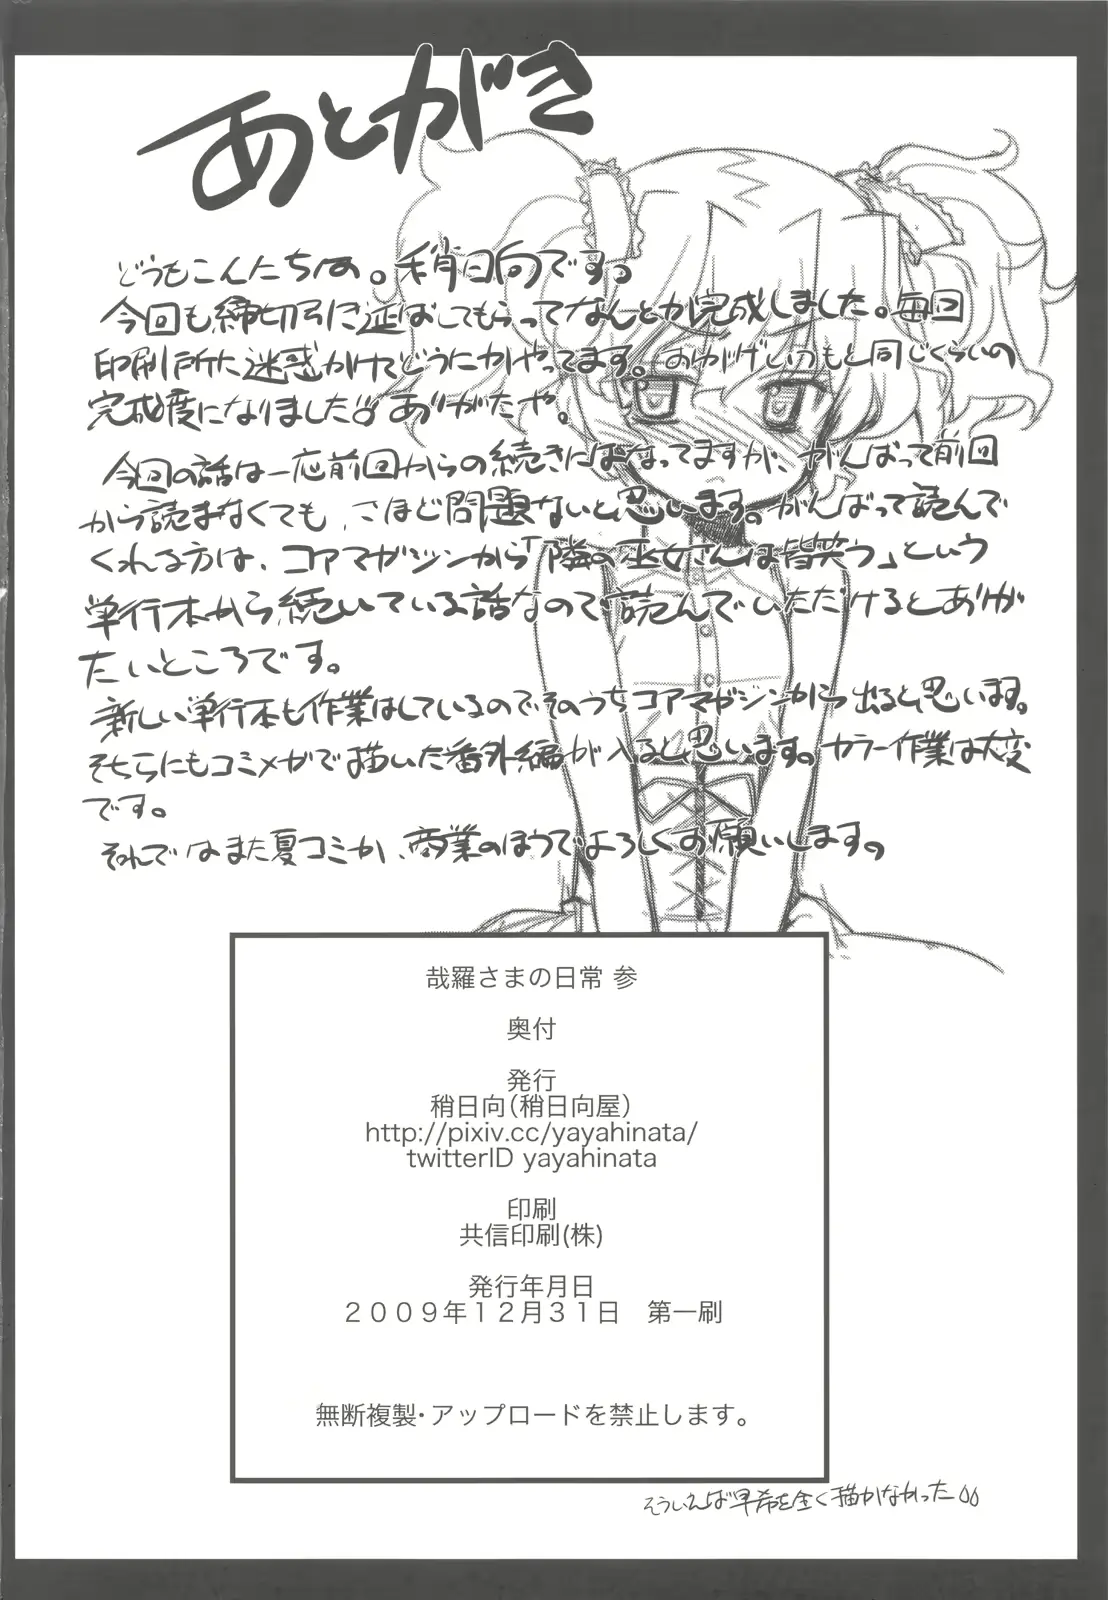 あとがき
どうもこんにちわ。稍日向です。
今回も締切ﾂに延ばしてもらってなんとか完成しました。毎回
印刷所に迷惑かけてどうにかやってます。おかげしのもと同じくらいの
完成度になりました。ありがたや。
今回の話は一応前回からの続きにはなってますが、がんばって前回
から読まなくても、さほど問題ないと思います。がんばって読んで
くれる方は、コアマガジンから「隣の巫女さんは皆笑う」という
単行本から続いている話なので読んでいただけるとありが
たいところです。
新しい単行本も作業はしているのでそのうちコアマガジンから出ると思います。
そちらにもコミメガで描いた番外編が入ると思います。カラー作業は大変
です。
それではまた夏コミか、商業のほうでよろしくお願いします。
哉羅さまの日常 参
奥付
発行
稍日向(稍日向屋)
http://pixiv.cc/yayahinata/
twitterID yayahinata
印刷
共信印刷(株)
発行年月日
２００９年１２月３１日　第一刷
無断複製・アップロードを禁止します。
そういえば早希を全く描かなかった